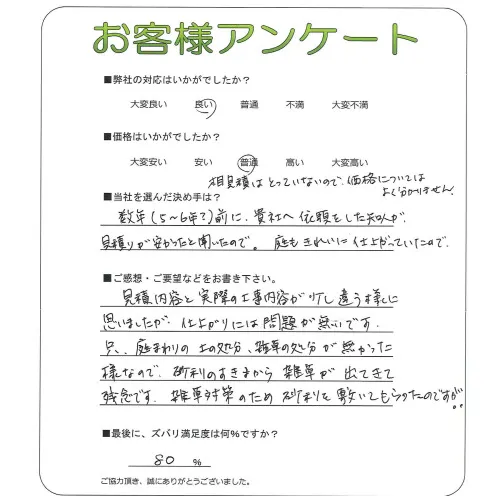 お客様アンケート
■弊社の対応はいかがでしたか？
大変良い 良い 普通 不満 大変不満
■価格はいかがでしたか？
大変安い 安い 普通 高い 大変高い
相見積はとっていないので、価格については
よく分かりません!
■当社を選んだ決め手は？
数年(5～6年?)前に、貴社へ依頼をした知人が、
見積りが安かったと聞いたので。庭もきれいに仕上がっていたので。
■ご感想・ご要望などをお書き下さい。
見積内容と実際の工事内容が少し違う様に
思いましたが、仕上がりには問題が無いです。
只、庭まわりの土の処分、雑草の処分が無かった
様なので、砂利のすきまから雑草が出てきて
残念です。雑草対策のため砂利を敷いてもらったのですが!!
■最後に、ズバリ満足度は何%ですか？
80 %
ご協力頂き、誠にありがとうございました。